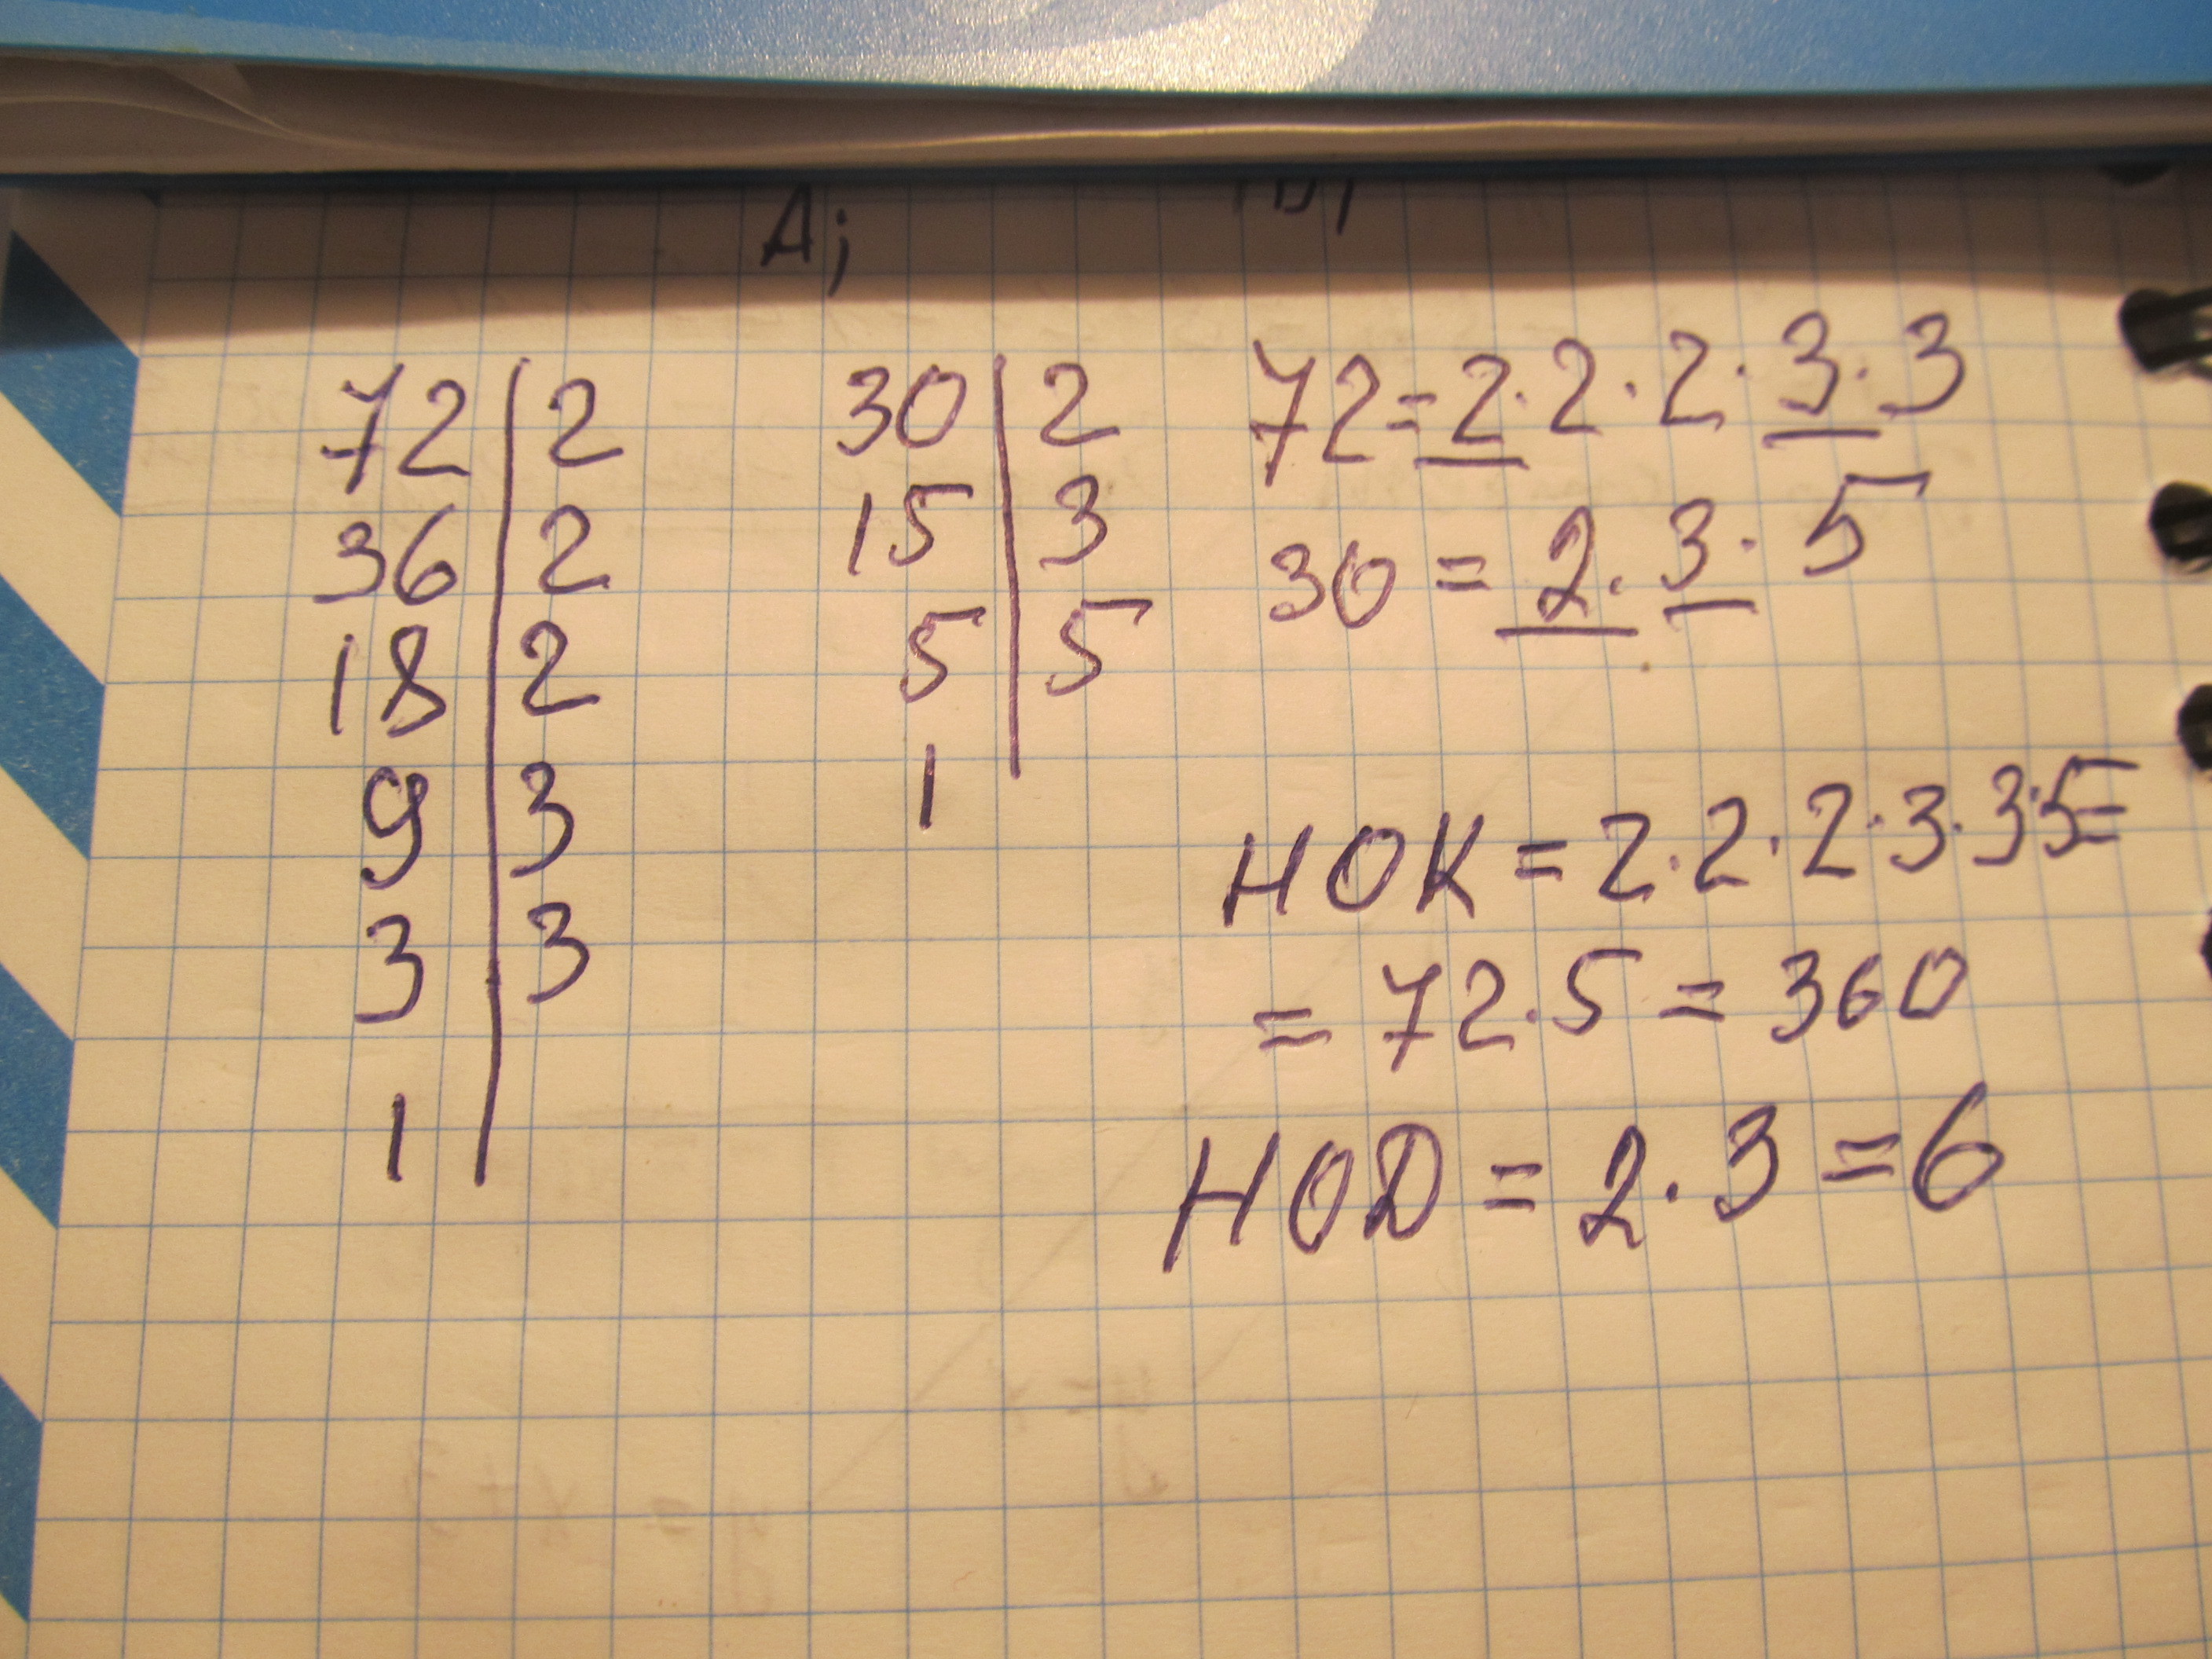 А;
72 | 2
36 | 2
18 | 2
9 | 3
3 | 3
1
30 | 2
15 | 3
5 | 5
1
72=2·2·2·3·3
30=2·3·5
НОК=2·2·2·3·3·5=
=72·5=360
НОD=2·3=6